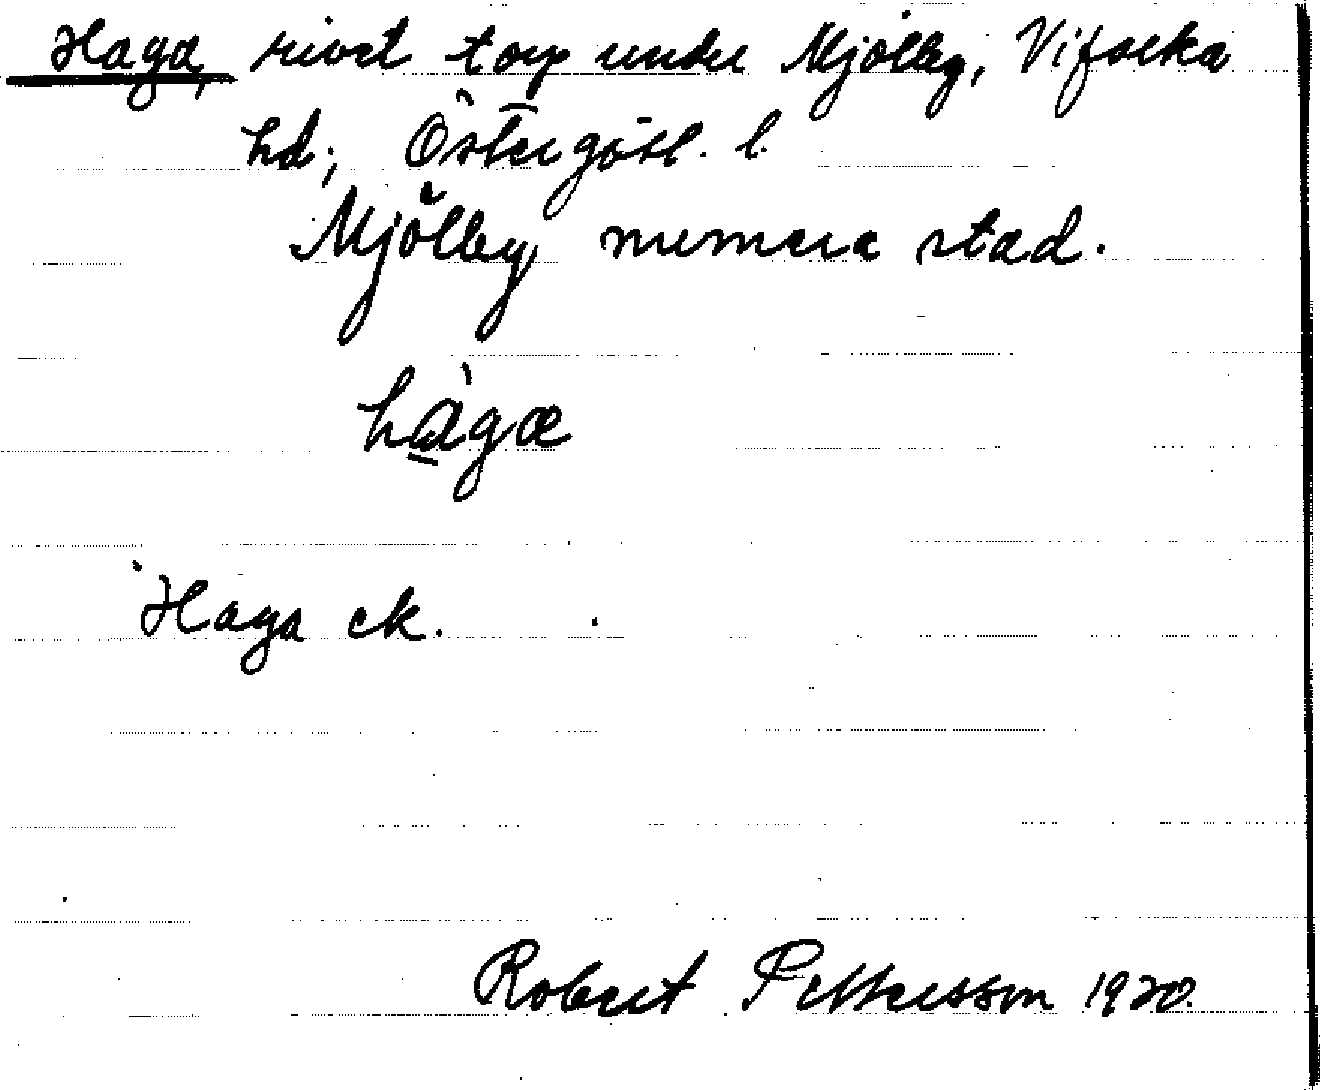 Haga, rivet torp under Mjölby, Vifolka
hd; Östergötl. l.
Mjölby numera stad.
hàgα
Haga ek.
Robert Pettersson 1920.